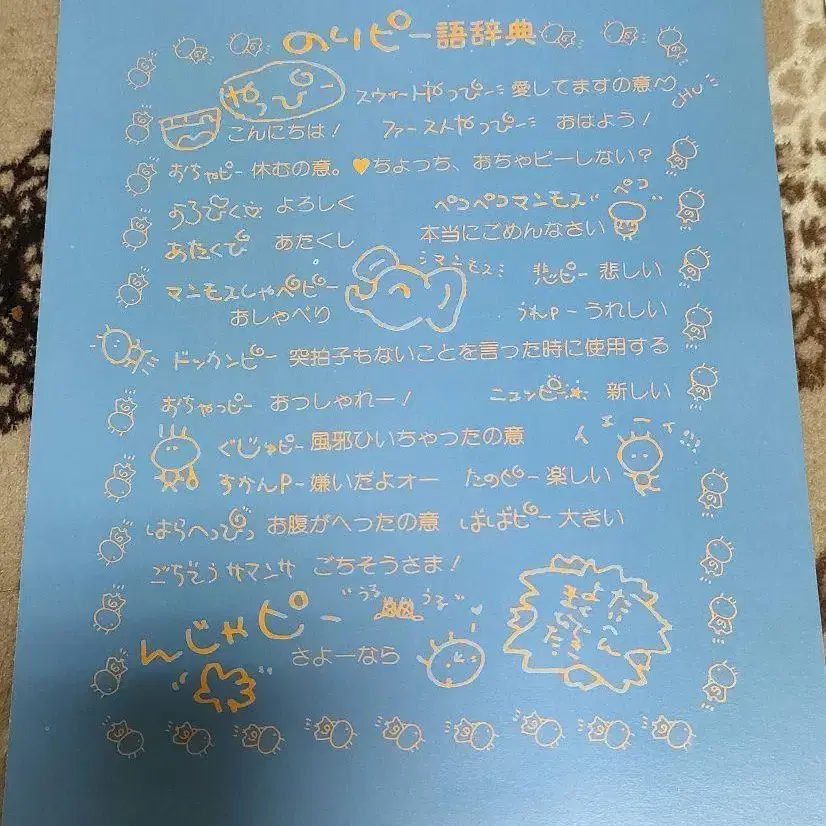 のりピー語辞典
やっぴー こんにちは！
スウィートやっぴー 愛してますの意 CHU
ファーストやっぴー おはよう！
おちゃピー 休むの意。♥ちよっち、おちゃピーしない？
よろぴく よろしく
ペコペコマンモス ペコ
本当にごめんなさい
あたくぴ あたくし
マンモスしゃべピー
おしゃべり
マンモス
悲ピー 悲しい
うれP－うれしい
ドンカンピー 突拍子もないことを言った時に使用する
おちゃっピー おっしゃれー！
ニュンピー 新しい
ぐじゅピー 風邪ひいちゃったの意
イエーイ
すかんP－嫌いだよオー
たのピー 楽しい
はらへっぴ お腹がへったの意
ばばピー 大きい
ごちそうサマンサ ごちそうさま！
んじゃピー
うる うる
さよーなら